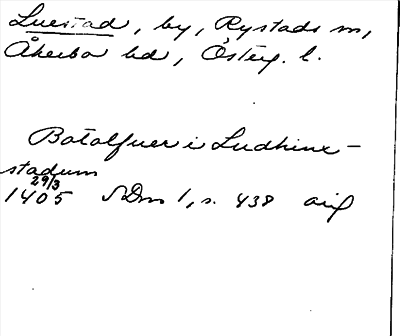 Luestad, by, Rystads sn,
Åkerbo hd, Österg. l.
Botolfuer i Ludhinx-
stadum
29/3
1405 SDns 1, s. 438 avs